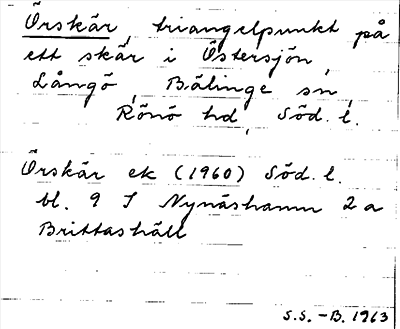 Örskär, triangelpunkt på
ett skär i Östersjön,
Långö, Bälinge sn,
Rönö hd, Söd. l.
Örskär ek (1960) Söd. l.
bl. 9 I Nynäshamn 2 a
Brittashäll
S.S. - B. 1963